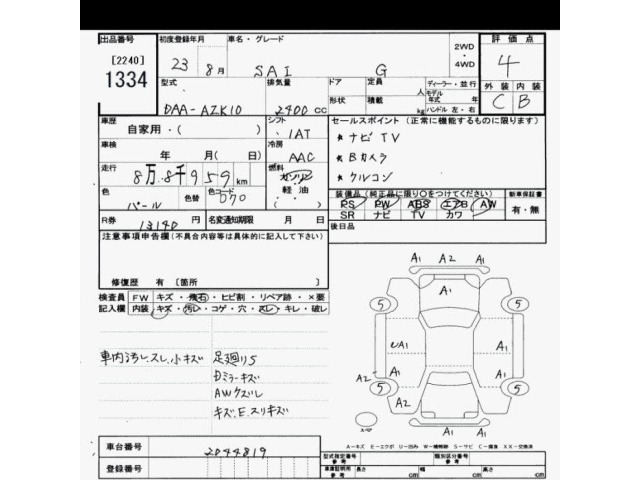 出品番号 初度登録年月 車名・グレード 2WD ・ 4WD 評価点
[2240] 1334 23 8月 SAI G 4
型式 排気量 ドア 定員 人 ディーラー・並行
形状 積載 kg モデル年式 年 外装 内装
DAA-AZK10 2400 CC ハンドル 左・右 C B
車歴 シフト セールスポイント (正常に機能するものに限ります)
自家用・( ) 1AT ★ナビTV
車検 冷房 ★Bカメラ
年 月( 日) AAC ★クルコン
走行 8万8千959km 燃料 ガソリン
軽油
( )
色 色替 色コード 070 装備品(純正品に限り○をつけてください) 新車保証書
パール PS PW ABS エアB AW 有・無
SR ナビ TV カワ
R券 13140円 名変通知期限 月 日 後日品
注意事項申告欄(不具合内容等は具体的に記入して下さい)
修復歴 有 [箇所
検査員記入欄 FW キズ・飛石・ヒビ割・リペア跡・×要
内装 キズ・汚レ・コゲ・穴・スレ・キレ・破レ
車内汚レ、スレ、小キズ 足廻りS
Dミラーキズ
AWクズレ
キズ、E、スリキズ
A1 A2 A1
5 A1 5
A1 A1
A1
A2 5 5
A2 A1
A1 A1
A-キズ E-エクボ U-凹み W-補修跡 S-サビ C-腐食 XX-交換済
車台番号 2044819
型式指定番号 参考 類別区分番号 参考
登録番号 車庫証明用 参考 長さ cm 幅 cm 高さ cm